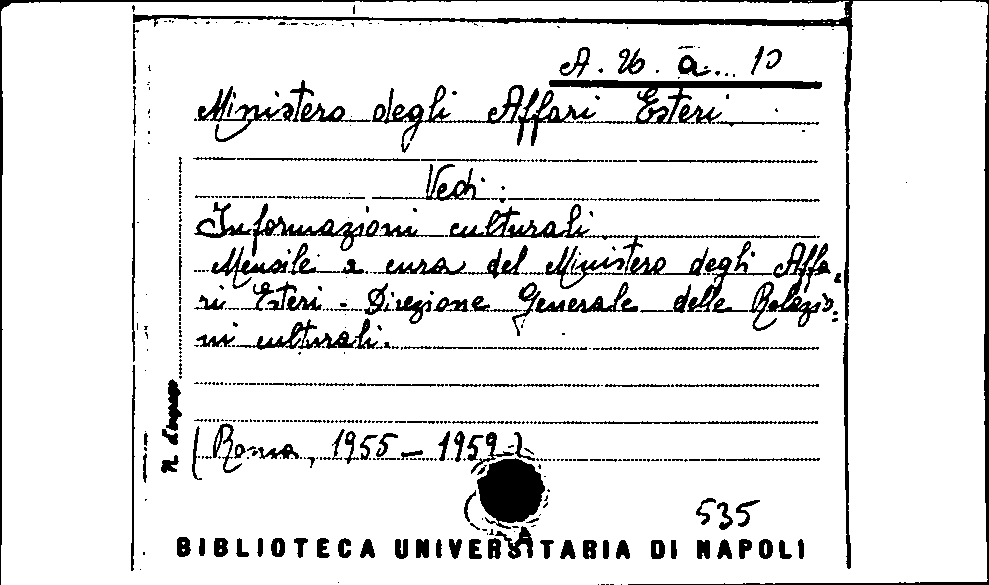 A. 26. a... 10
Ministero degli Affari Esteri.
Vedi:
Informazioni culturali.
Mensile a cura del Ministero degli Affa=
ri Esteri - Direzione Generale delle Relazio=
ni culturali.
N. d'ingresso
(Roma, 1955 - 1959)
535
BIBLIOTECA UNIVERSITARIA DI NAPOLI